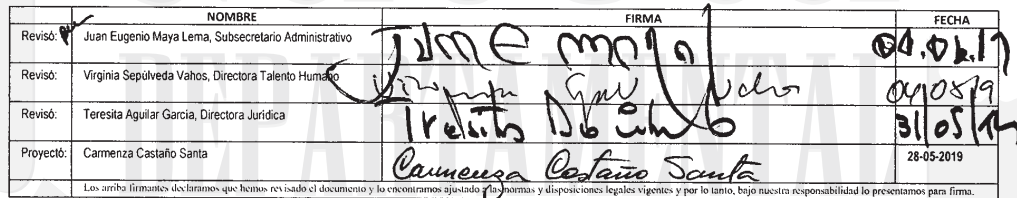 NOMBRE FIRMA FECHA
Revisó: Juan Eugenio Maya Lema, Subsecretario Administrativo
Revisó: Virginia Sepúlveda Vahos, Directora Talento Humano
Revisó: Teresita Aguilar García, Directora Jurídica 31/05/19
Proyectó: Carmenza Castaño Santa Carmenza Castaño Santa 28-05-2019
Los arriba firmantes declaramos que hemos revisado el documento y lo encontramos ajustado a las normas y disposiciones legales vigentes y por lo tanto, bajo nuestra responsabilidad lo presentamos para firma.